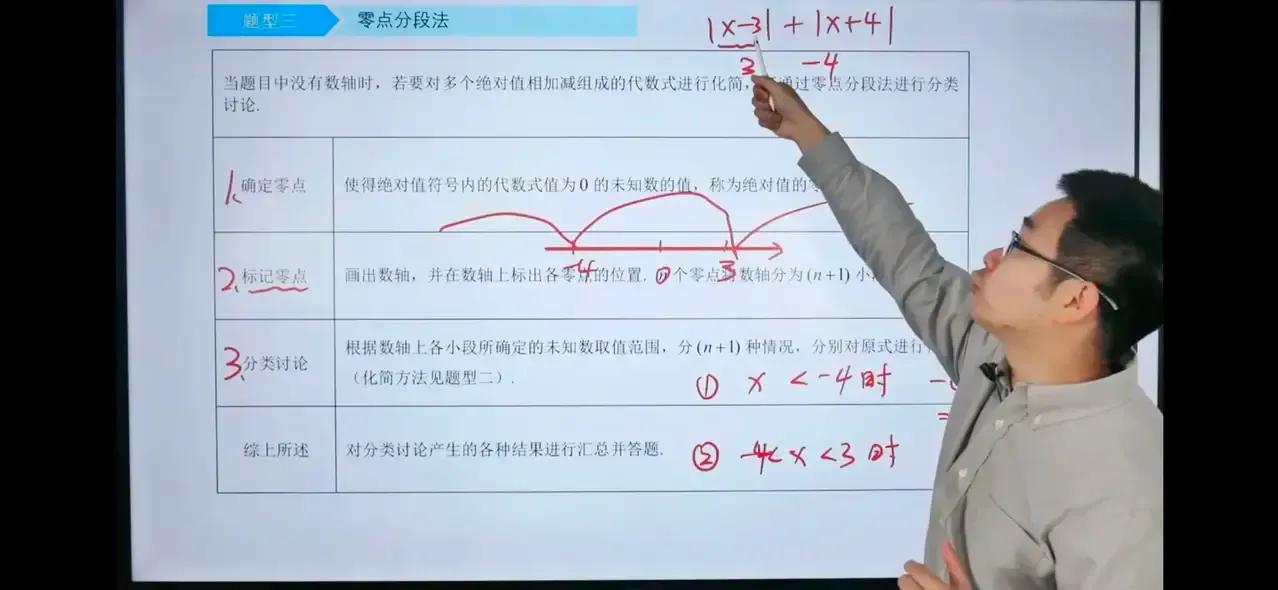 题型三 零点分段法
|x-3| + |x+4|
3 -4
当题目中没有数轴时，若要对多个绝对值相加减组成的代数式进行化简，通过零点分段法进行分类
讨论.
1、确定零点 使得绝对值符号内的代数式值为 0 的未知数的值，称为绝对值的
-4 0 3
2、标记零点 画出数轴，并在数轴上标出各零点的位置. 个零点将数轴分为 (n+1) 小
3、分类讨论 根据数轴上各小段所确定的未知数取值范围，分 (n+1) 种情况，分别对原式进行
（化简方法见题型二）.
① x < -4 时
综上所述 对分类讨论产生的各种结果进行汇总并答题.
② -4< x <3 时